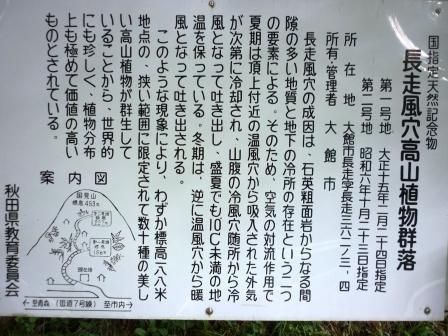 国指定天然記念物
長走風穴高山植物群落
第一号地 大正十五年二月二十四日指定
第二号地 昭和六年十月二十三日指定
所在地 大館市長走字長走三六二ノ三、四
所有、管理者 大館市
長走風穴の成因は、石英粗面岩からなる間
隙の多い地質と地下の冷所の存在という二つ
の要素による。そのため、空気の対流作用で
夏期は頂上付近の温風穴から吸入された外気
が次第に冷却され、山腹の冷風穴随所から冷
風となって吐き出し、盛夏でも10℃未満の地
温を保っている。冬期は、逆に温風穴から暖
風となって吐き出される。
このような現象により、わずか標高一八八米
地点の、狭い範囲に限定されて数十種の美し
い高山植物が群生して
いることから、世界的
にも珍しく、植物分布
上も極めて価値の高い
ものとされている。
案内図
国見山
標高453m
現在地
至青森(国道7号線)至市内
秋田県教育委員会